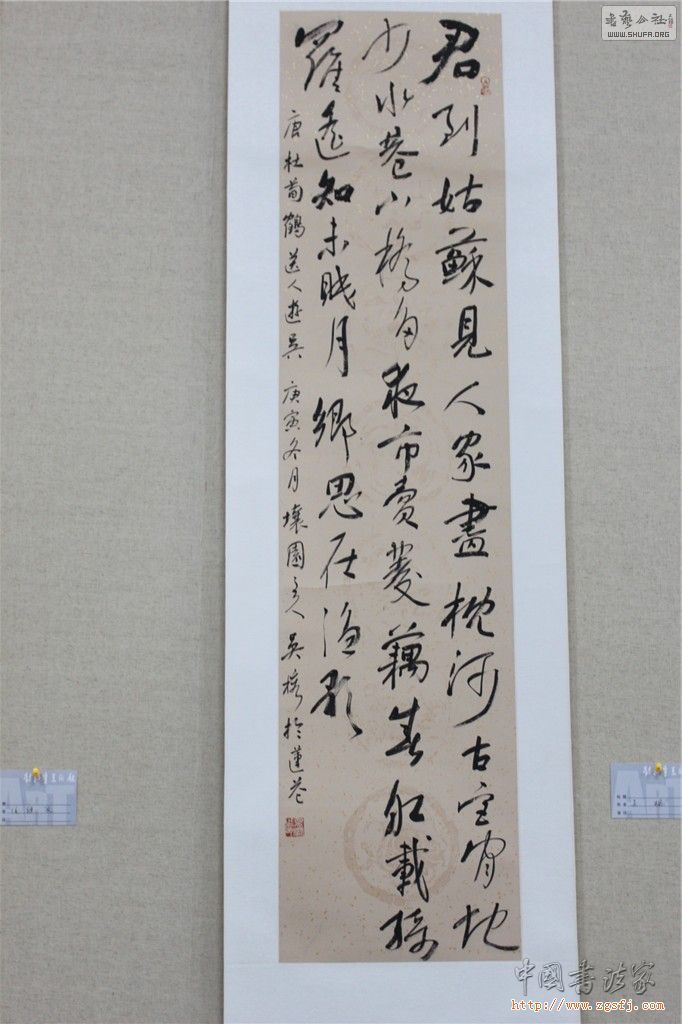 书艺公社
WWW.SHUFA.ORG
君到姑蘇見人家盡枕河古宮閒地
少水巷小橋多夜市賣菱藕春舡載綺
羅遙知未眠月鄉思在漁歌
唐杜荀鶴送人遊吳 庚寅冬月壤園主人吳 於蓮巷
中國書法家
http://www.zgsfj.com